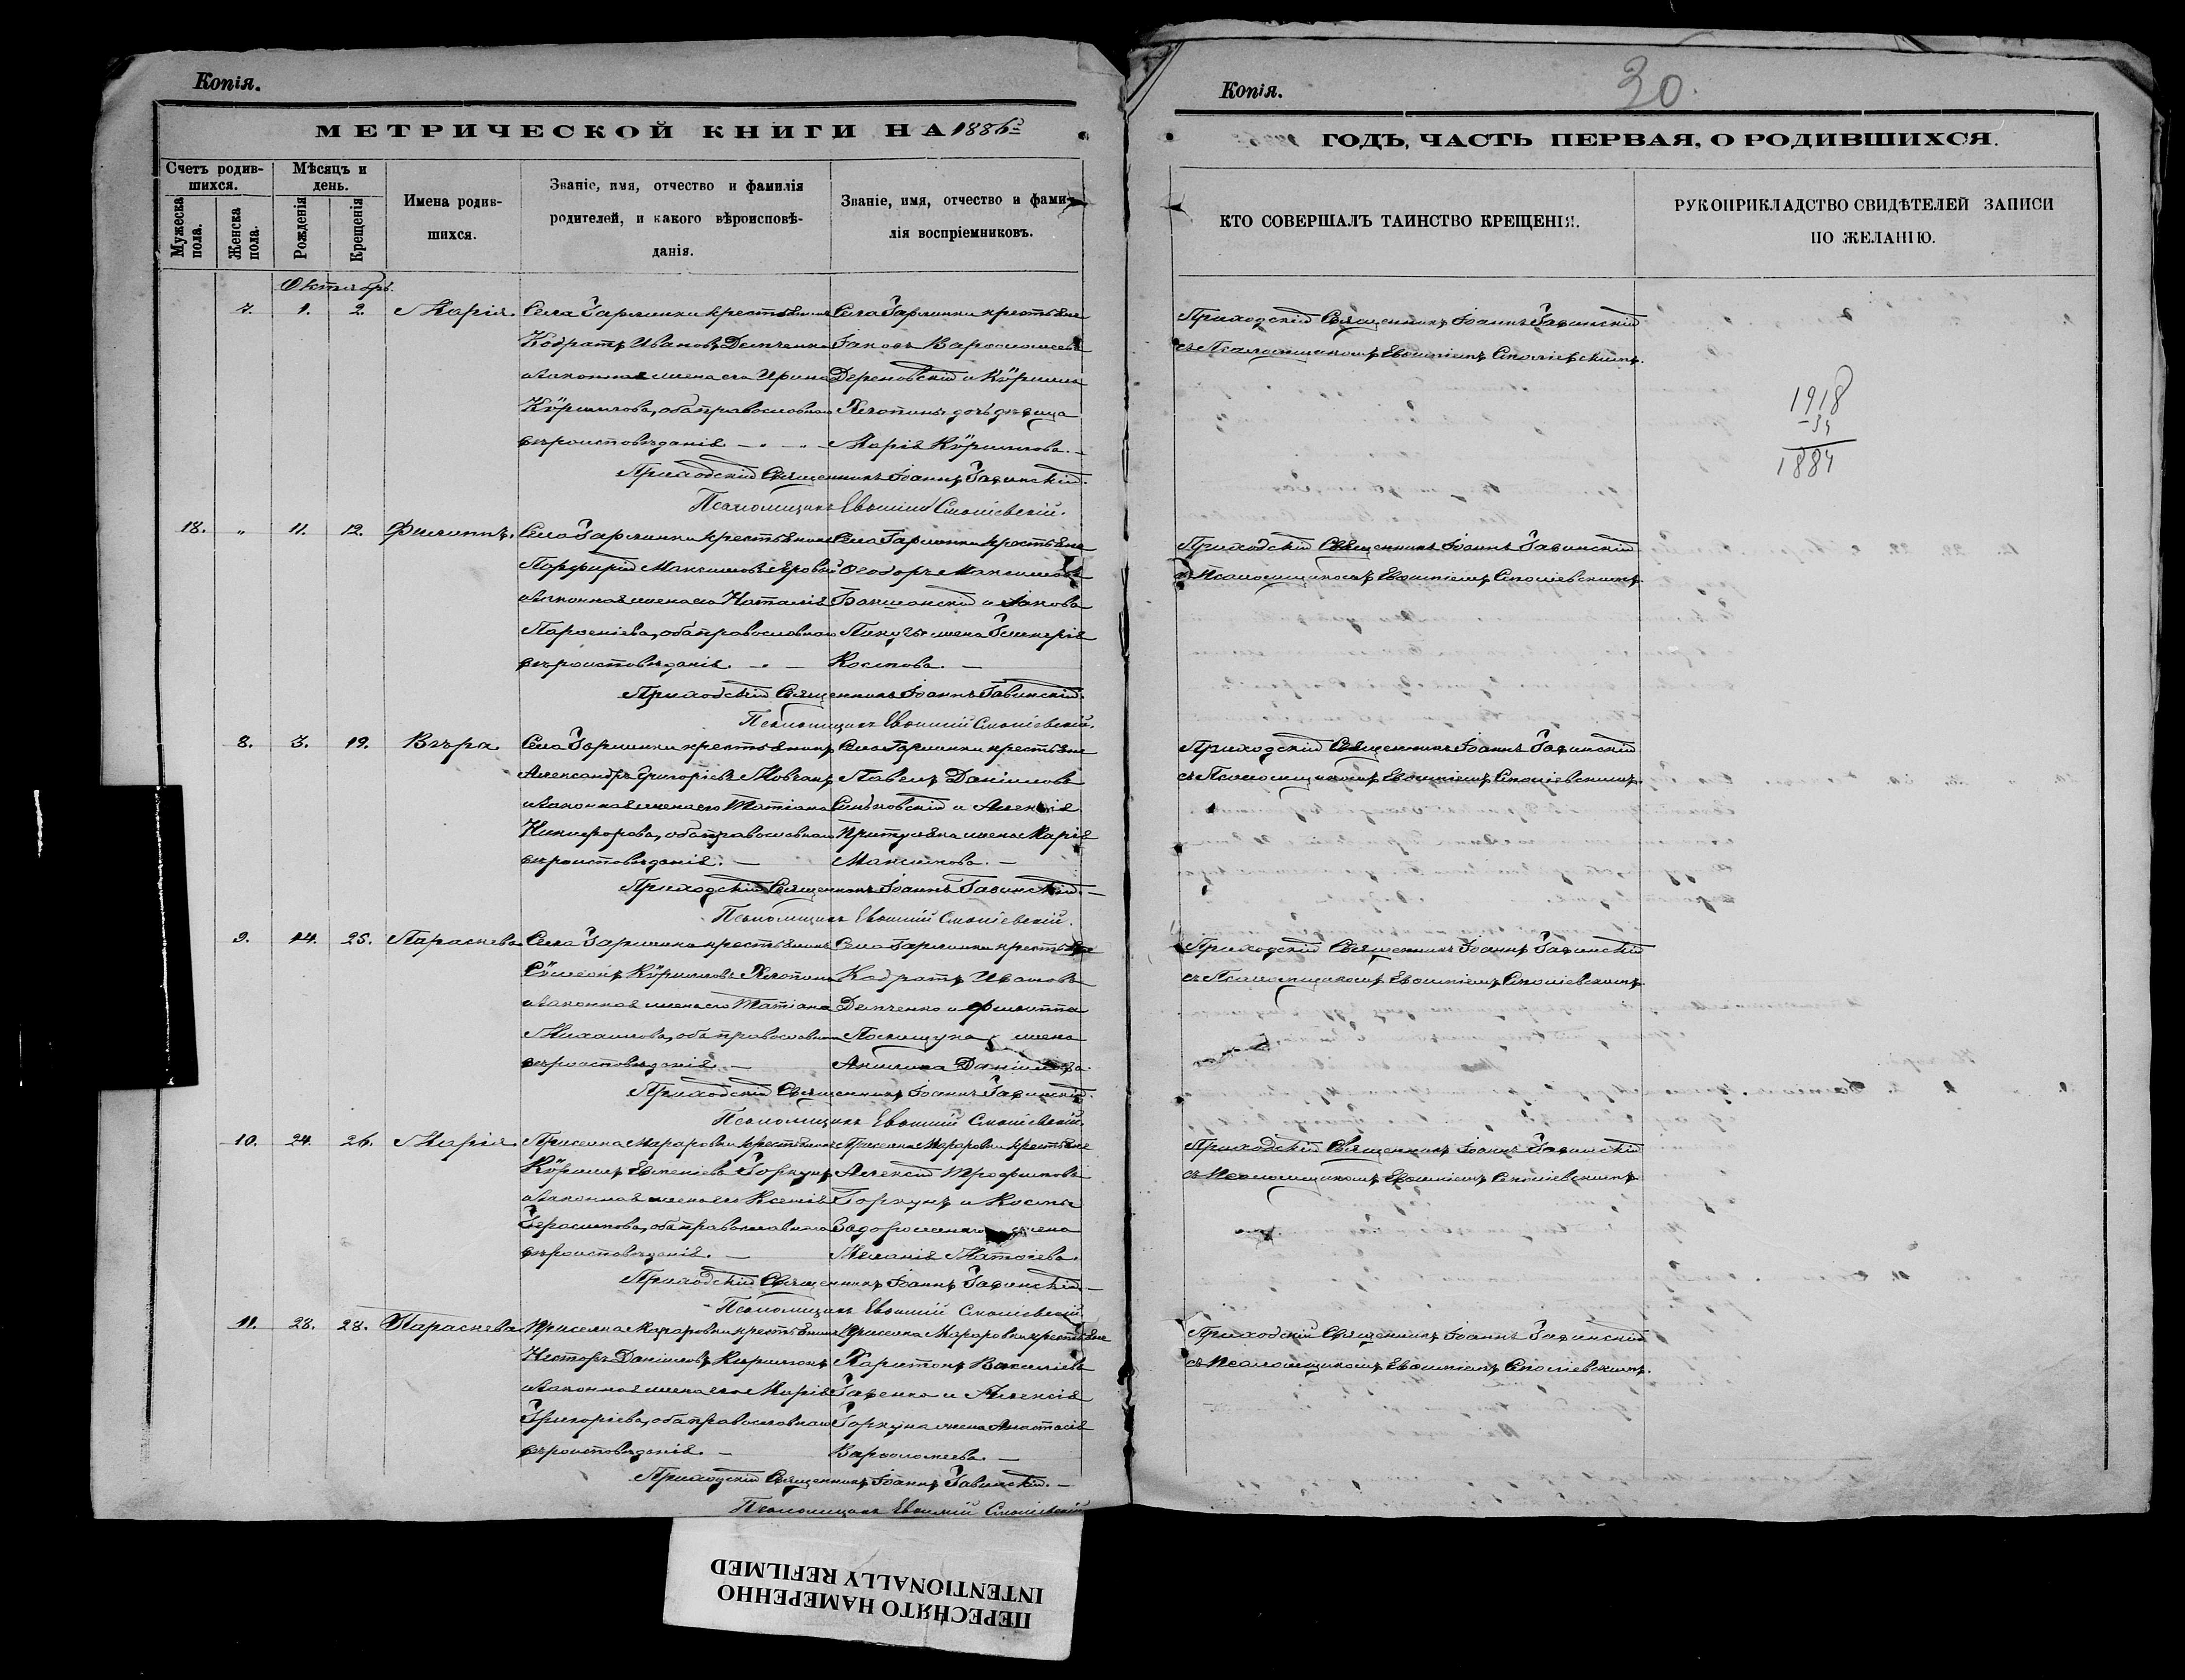 Копія.
МЕТРИЧЕСКОЙ КНИГИ НА 1886 г
Счетъ родив-
шихся.
Мужеска пола.
Женска пола.
Мѣсяцъ и
день.
Рожденія
Крещенія
Имена родив-
шихся.
Званіе, имя, отчество и фамилія
родителей, и какого вѣроисповѣ-
данія.
Званіе, имя, отчество и фами-
лія воспріемниковъ.
Октябрь.
7. 1. 2. Марія.
Села Гарлинки крестьянинъ
Кодратъ Ивановъ Демченко
и законная жена его Ирина
Кѵриллова, оба православнаго
вѣроисповѣданія
Села Гарлинки крестьяне
Іаковъ Варѳоломеевъ
Дереновскій и Кѵрилла
дочь дѣвица
Марія Кѵриллова.
Приходскій Священникъ Іоаннъ
Псаломщикъ Евѳимій
18. " 11. 12. Филиппъ.
Села Гарлинки крестьянинъ
Порфирій Максимовъ Яровый
и законная жена его Наталія
Парѳеніева, оба православнаго
вѣроисповѣданія.
Села Гарлинки крестьяне
Ѳеодоръ Максимовъ
и Іакова
жена Гликерія
Космова.
Приходскій Священникъ Іоаннъ
Псаломщикъ Евѳимій
8. 3. 19. Вѣра
Села Гарлинки крестьянинъ
Александръ Григоріевъ Мовчанъ
и законная жена его Татіана
Никифорова, оба православнаго
вѣроисповѣданія.
Села Гарлинки крестьяне
Павелъ Даніиловъ
и Алексія
жена Марія
Максимова.
Приходскій Священникъ Іоаннъ
Псаломщикъ Евѳимій
9. 14. 25. Параскева
Села Гарлинки крестьянинъ
Сѵмеонъ Кѵрилловъ
и законная жена его Татіана
Михаилова, оба православнаго
вѣроисповѣданія.
Села Гарлинки крестьяне
Кодратъ Ивановъ
Демченко и Филиппа
жена
Акилина Даніилова.
Приходскій Священникъ Іоаннъ
Псаломщикъ Евѳимій
10. 24. 26. Марія
Приселка Макаровки крестьянинъ
Кѵриллъ Евгеніевъ Горкунъ
и законная жена его Ксенія
Герасимова, оба православнаго
вѣроисповѣданія.
Приселка Макаровки крестьяне
Алексій Трофимовъ
Горкунъ и Космы
Задорожнаго жена
Меланія Матѳіева.
Приходскій Священникъ Іоаннъ
Псаломщикъ Евѳимій
11. 28. 28. Параскева
Приселка Макаровки крестьянинъ
Несторъ Даніиловъ
и законная жена его Марія
Григоріева, оба православнаго
вѣроисповѣданія.
Приселка Макаровки крестьяне
Харитонъ Василіевъ
и Алексія
Горкуна жена Анастасія
Варѳоломеева.
Приходскій Священникъ Іоаннъ
Псаломщикъ Евѳимій
Копія.
30.
ГОДЪ, ЧАСТЬ ПЕРВАЯ, О РОДИВШИХСЯ.
КТО СОВЕРШАЛЪ ТАИНСТВО КРЕЩЕНІЯ.
РУКОПРИКЛАДСТВО СВИДѢТЕЛЕЙ ЗАПИСИ
ПО ЖЕЛАНІЮ.
Приходскій Священникъ Іоаннъ
съ Псаломщикомъ Евѳиміемъ
1918
-34
1884
Приходскій Священникъ Іоаннъ
съ Псаломщикомъ Евѳиміемъ
Приходскій Священникъ Іоаннъ
съ Псаломщикомъ Евѳиміемъ
Приходскій Священникъ Іоаннъ
съ Псаломщикомъ Евѳиміемъ
Приходскій Священникъ Іоаннъ
съ Псаломщикомъ Евѳиміемъ
Приходскій Священникъ Іоаннъ
съ Псаломщикомъ Евѳиміемъ
ПЕРЕСНЯТО НАМЕРЕННО
INTENTIONALLY REFILMED